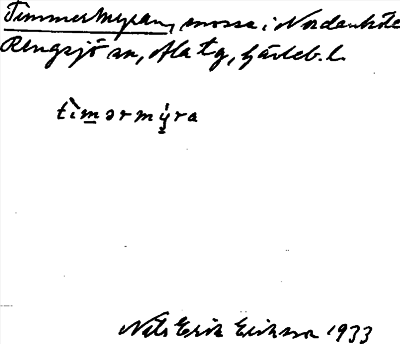 Timmermyran, mossa i Nordankäle
Rengsjö sn, Ala tg, Gävleb. l.
tìmərmýra
Nils Erik Eriksson 1933